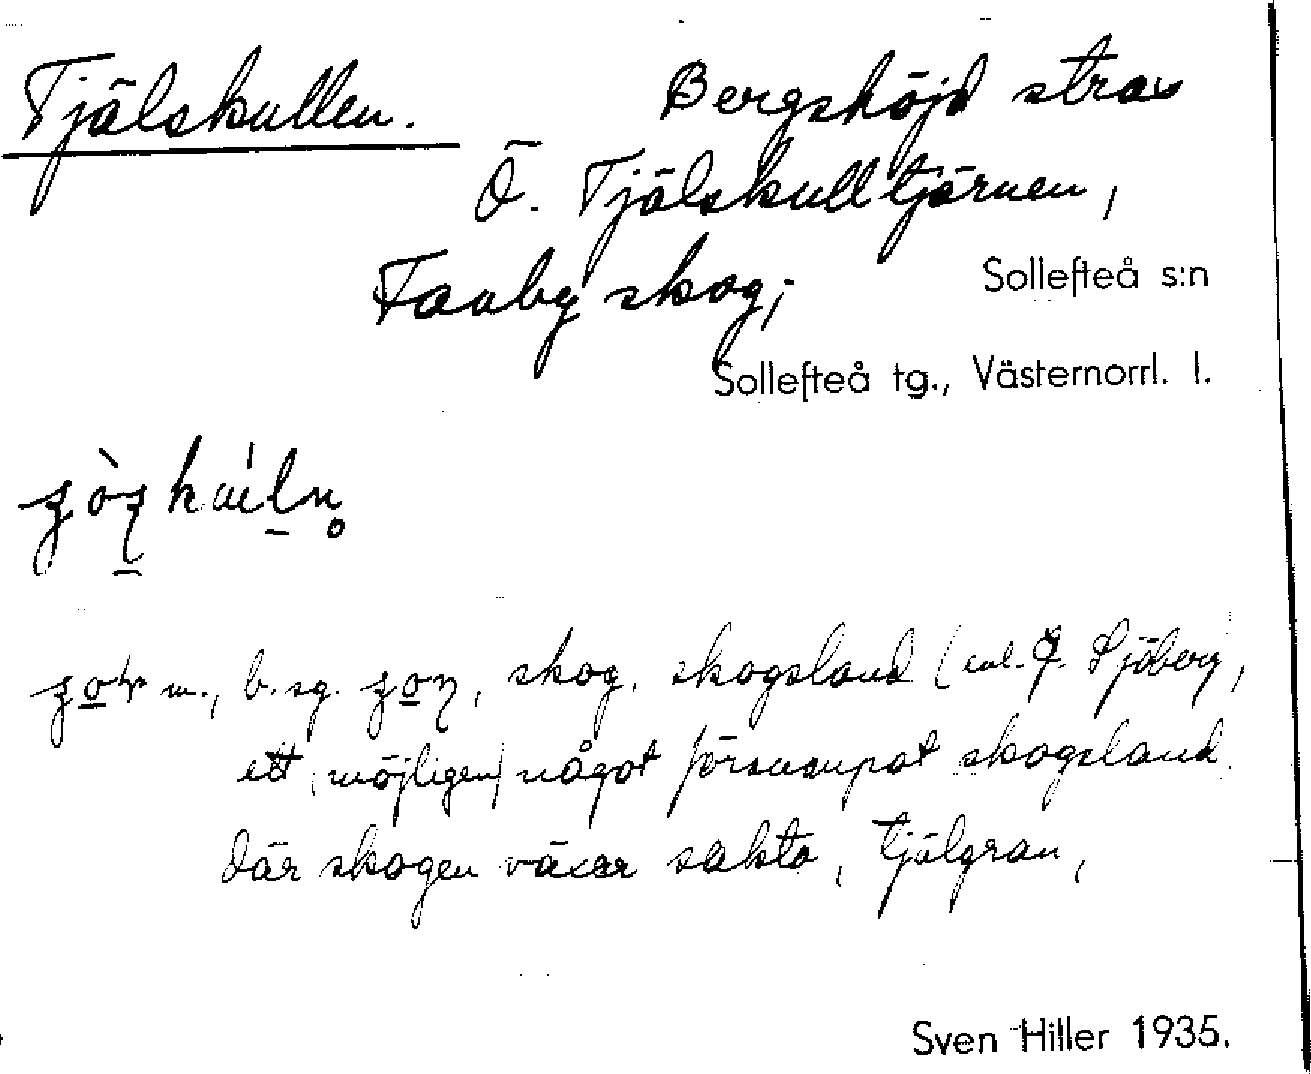 Tjälskullen. Bergshöjd strax
Ö. Tjälskulltjärnen,
Tanby skog;
Sollefteå s:n
Sollefteå tg., Västernorrl. l.
m., b. sg. , skog, skogsland (enl. Sjöberg,
ett (möjligen) något försumpat skogsland
där skogen växer sakta, tjälgran,
Sven Hiller 1935.